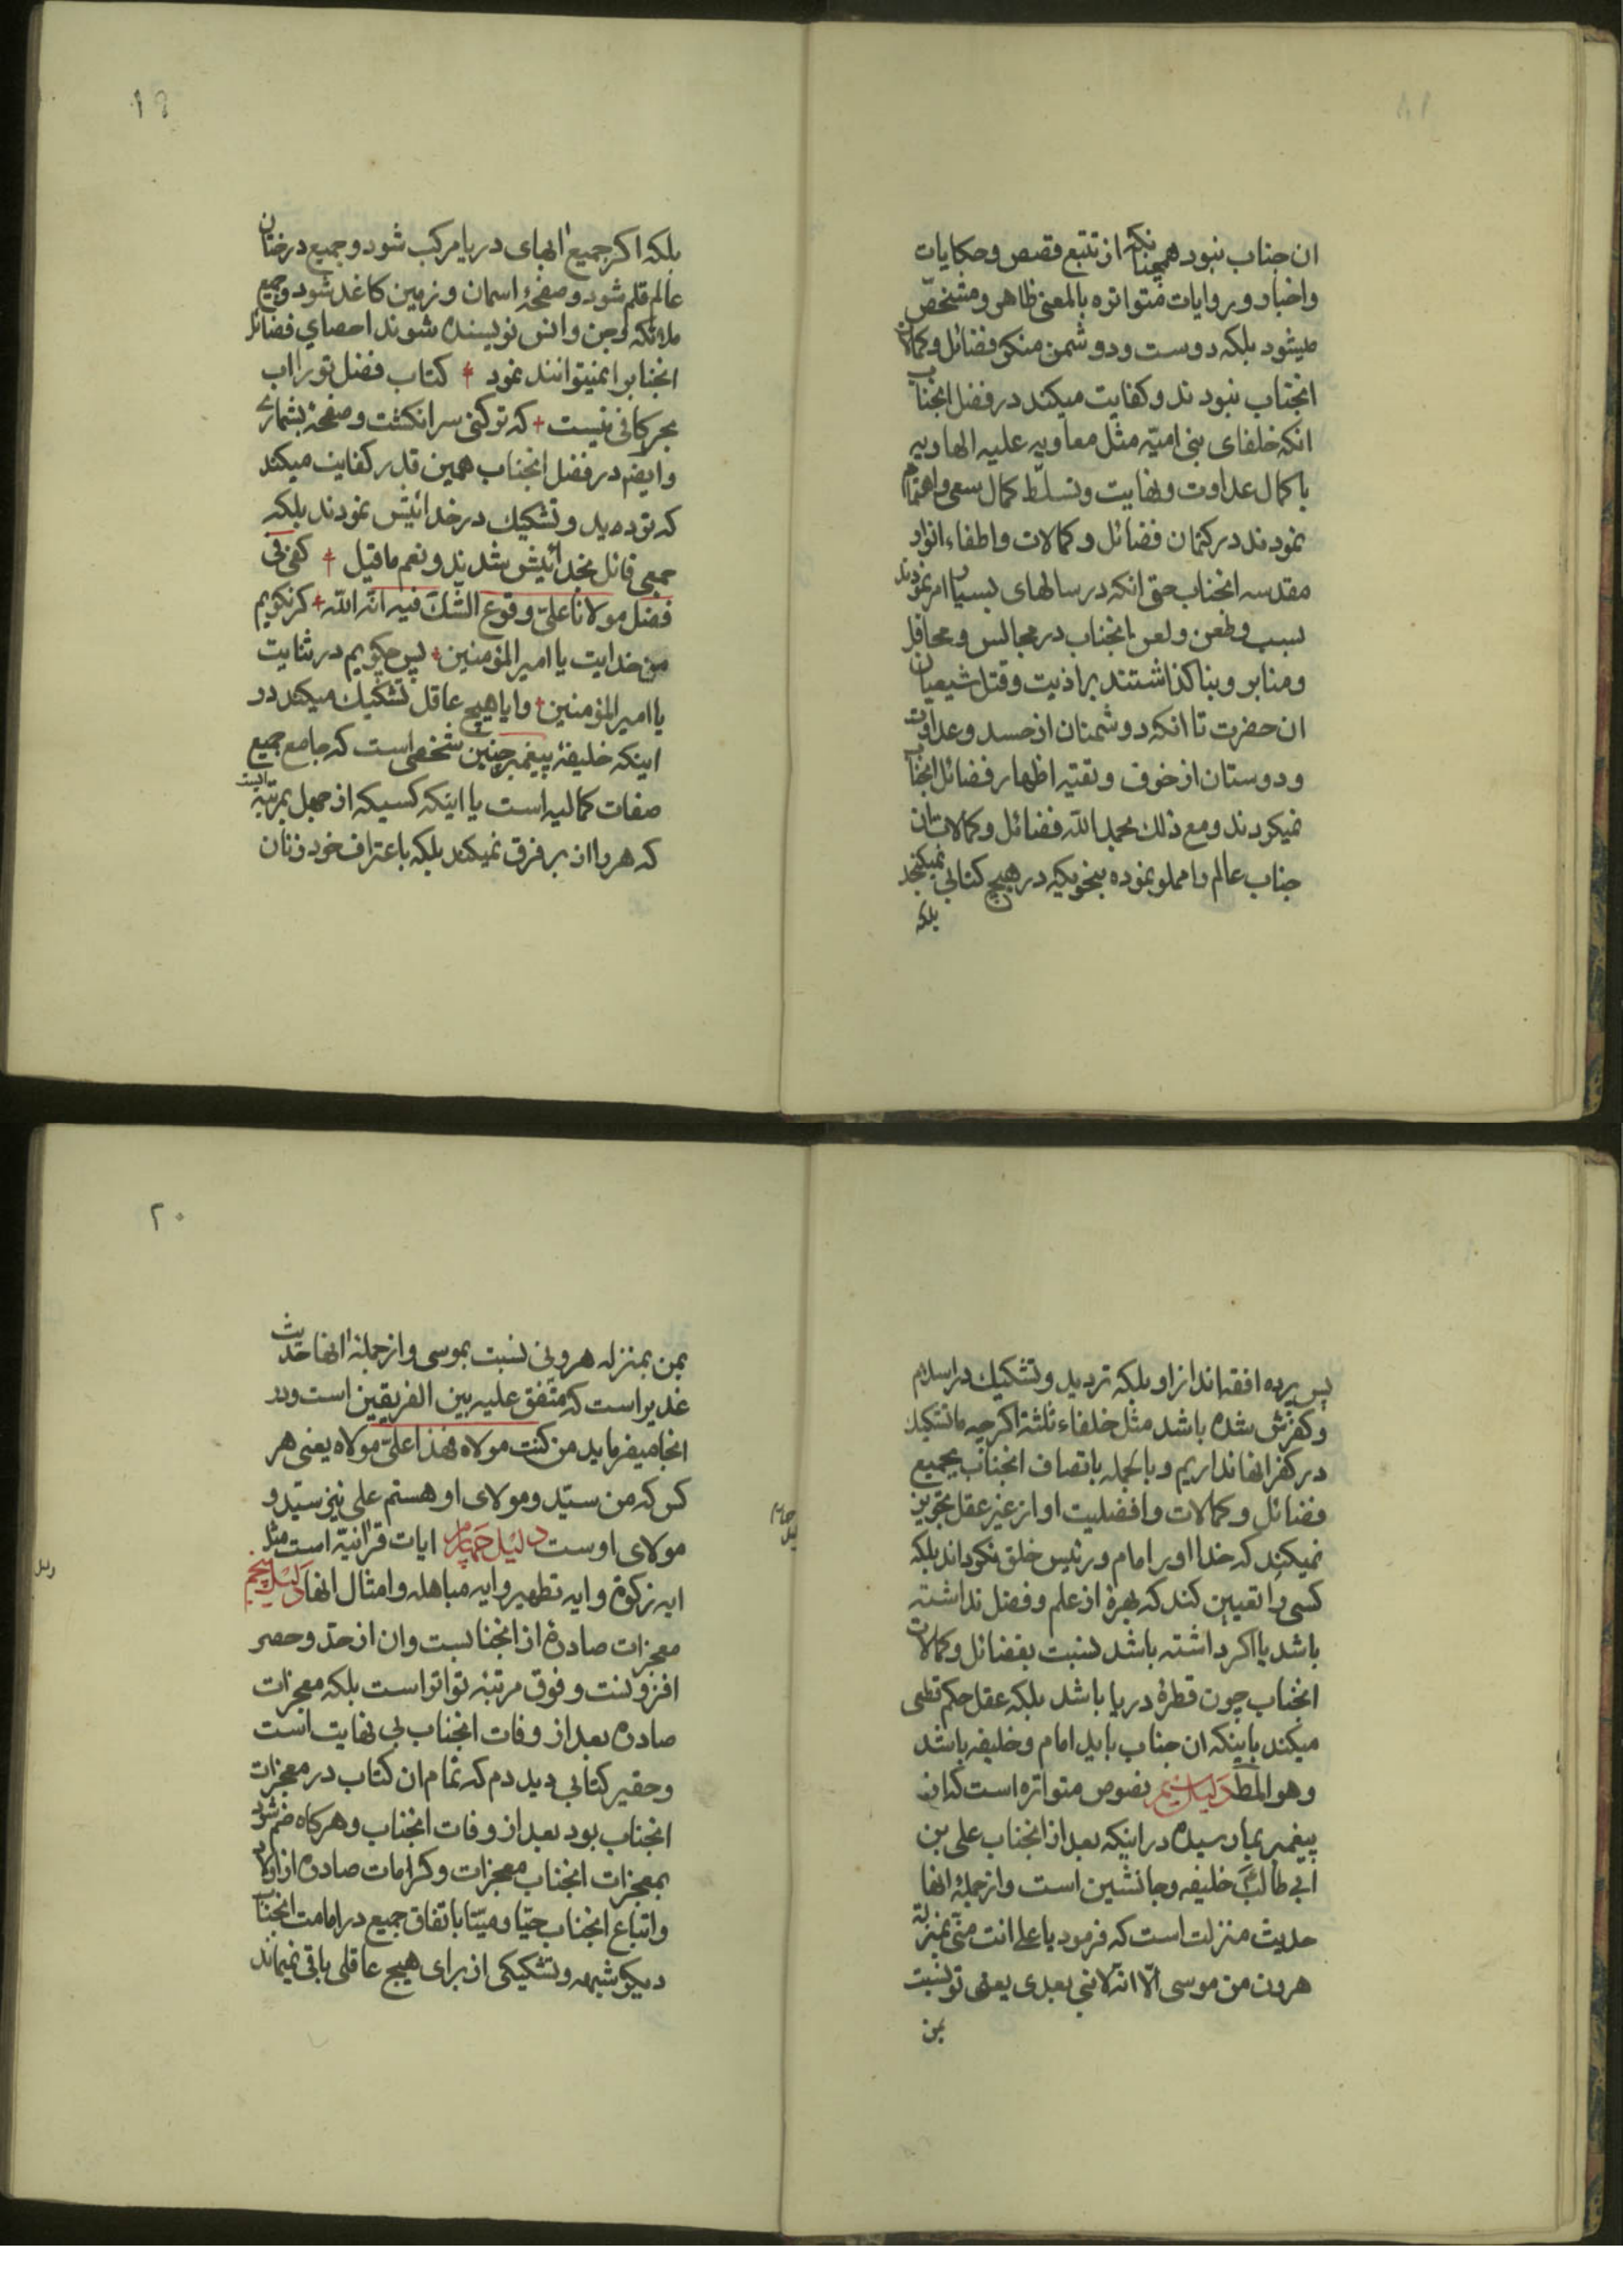 ان جناب نبود همچنانکه از تتبع قصص و حکایات
و اخبار و روایات متواتره بالمعنی ظاهر و مشخص
میشود بلکه دوست و دو شمن منکر فضائل و کمالات
انجناب نبودند و کفایت میکند در فضل انجناب
انکه خلفای بنی امیّه مثل معاویه علیه الهاویه
با کمال عداوت و نهایت و تسلّط کمال سعی و اهتمام
نمودند در کتمان فضائل و کمالات و اطفاء انوار
مقدسه انجناب حتی انکه در سالهای بسیار امر نمودند
بسب و طعن و لعن بانجناب در مجالس و محافل
و منابر و بنا کذاشتند بر اذیت و قتل شیعیان
ان حضرت تا انکه دوشمنان از حسد و عداوت
و دوستان از خوف و تقیّه اظهار فضائل انجناب
نمیکردند و مع ذلك بحمد الله فضائل و کمالات ان
جناب عالم را مملو نموده بنحویکه در هیچ کتابی نمیکنجد
بلکه
١٩
بلکه اکر جمیع ابهای دریا مرکب شود و جمیع درختان
عالم قلم شود و صفحهٔ اسمان و زمین کاغذ شود و جمیع
ملائکه و جن و انس نویسنده شوند احصای فضائل
انجناب را نمیتوانند نمود کتاب فضل تو را اب
بحر کافی نیست که تو کنی سر انکشت و صفحهٔ بشماری
و ایضا در فضل انجناب همین قدر کفایت میکند
که تردید و تشکیك در خدائیش نمودند بلکه
جمعی قائل بخدائیش شدند و نعم ما قیل کفی فی
فضل مولانا علیّ وقوع الشكّ فیه انّه الله کر نکویم
من خدایت یا امیر المؤمنین پس چکویم در ثنایت
یا امیر المؤمنین و ایا هیچ عاقل تشکیك میکند در
اینکه خلیفهٔ پیغمبر چنین شخصی است که جامع جمیع
صفات کمالیه است یا اینکه کسیکه از جهل بمرتبه ایست
که هر را از بر فرق نمیکند بلکه باعتراف خود زنان
پس پرده افقه‌اند از او بلکه تردید و تشکیك در اسلام
و کفرش شده باشد مثل خلفاء ثلثه اکر چه ما تشکیك
در کفر انها نداریم و بالجمله باتصاف انجناب بجمیع
فضائل و کمالات و افضلیت او از غیر عقل تجویز
نمیکند که خدا او را امام و رئیس خلق نکرداند بلکه
کسی را تعیین کند که بهرهٔ از علم و فضل نداشته
باشد یا اکر داشته باشد نسبت بفضائل و کمالات
انجناب چون قطرهٔ دریا باشد بلکه عقل حکم قطعی
میکند باینکه ان جناب باید امام و خلیفه باشد
و هو المط دلیل سیّم نصوص متواتره است که از
پیغمبر بما رسیده در اینکه بعد از انجناب علی بن
ابی طالب خلیفه و جانشین است و از جملهٔ انها
حدیث منزلت است که فرمود یا علی انت منّی بمنزلة
هرون من موسی الّا انّه لا نبی بعدی یعنی تو نسبت
بمن
٢٠
بمن بمنزله هرونی نسبت بموسی و از جملهٔ انها حدیث
غدیر است که متّفق علیه بین الفریقین است و در
انجا میفرماید من کنت مولاه فهذا علیّ مولاه یعنی هر
کس که من سیّد و مولای او هستم علی نیز سیّد و
مولای اوست دلیل چهارم ایات قرانیّه است مثل
ایه زکوة و ایه تطهیر و ایه مباهله و امثال انها دلیل پنجم
معجزات صادرهٔ از انجنابست و ان از حدّ و حصر
افزونست و فوق مرتبهٔ تواتر است بلکه معجزات
صادره بعد از وفات انجناب بی نهایت است
و حقیر کتابی دیدم که تمام ان کتاب در معجزات
انجناب بود بعد از وفات انجناب و هر کاه ضم شود
بمعجزات انجناب معجزات و کرامات صادره از اولاد
و اتباع انجناب حیّا و میّتا باتفاق جمیع در امامت انجناب
دیکر شبهه و تشکیکی از برای هیچ عاقلی باقی نمیماند